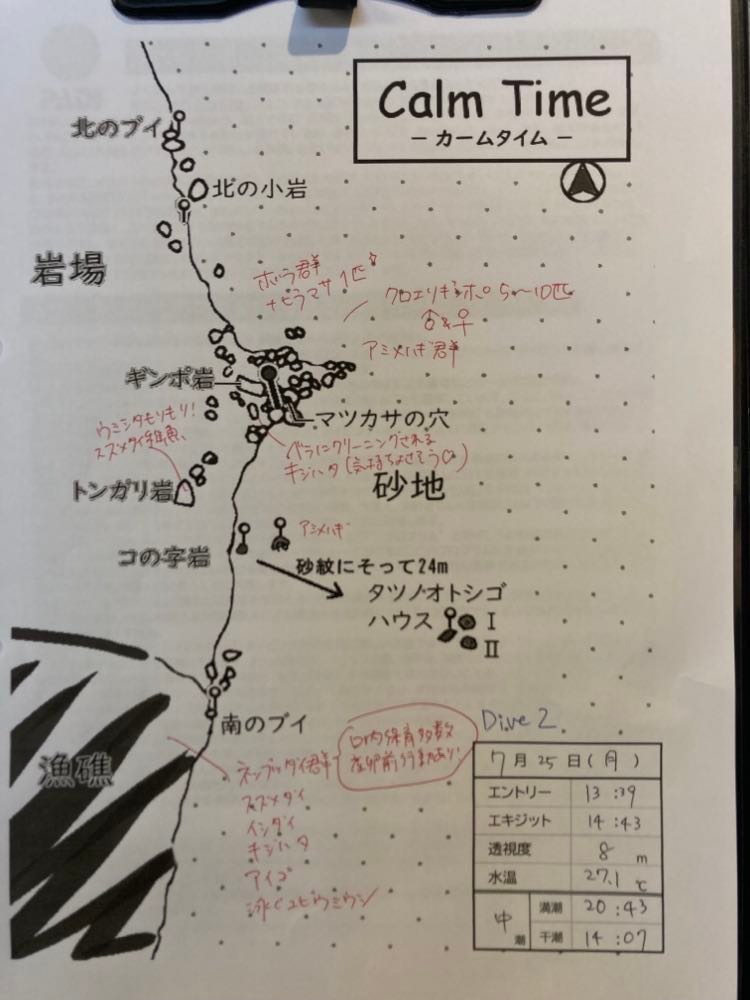 Calm Time
− カームタイム −
北のブイ
北の小岩
岩場
ボラ群
+ヒラマサ 1匹
クロエリギンポ 5〜10匹
♂&♀
アミメハギ群
ギンポ岩
マツカサの穴
ウミシダもりもり!
スズメダイ稚魚、
ベラにクリーニングされる
キジハタ(気持ちよさそう♡)
砂地
トンガリ岩
アミメハギ
コの字岩
砂紋にそって24m
タツノオトシゴ
ハウス
I
II
南のブイ
漁礁
ネンブツダイ群
口内保育多数
産卵前行動あり!
スズメダイ
イシダイ
キジハタ
アイゴ
泳ぐユビウミウシ
Dive 2
7月 25日(月)
エントリー 13:39
エキジット 14:43
透視度 8 m
水温 27.1 ℃
中潮
満潮 20:43
干潮 14:07